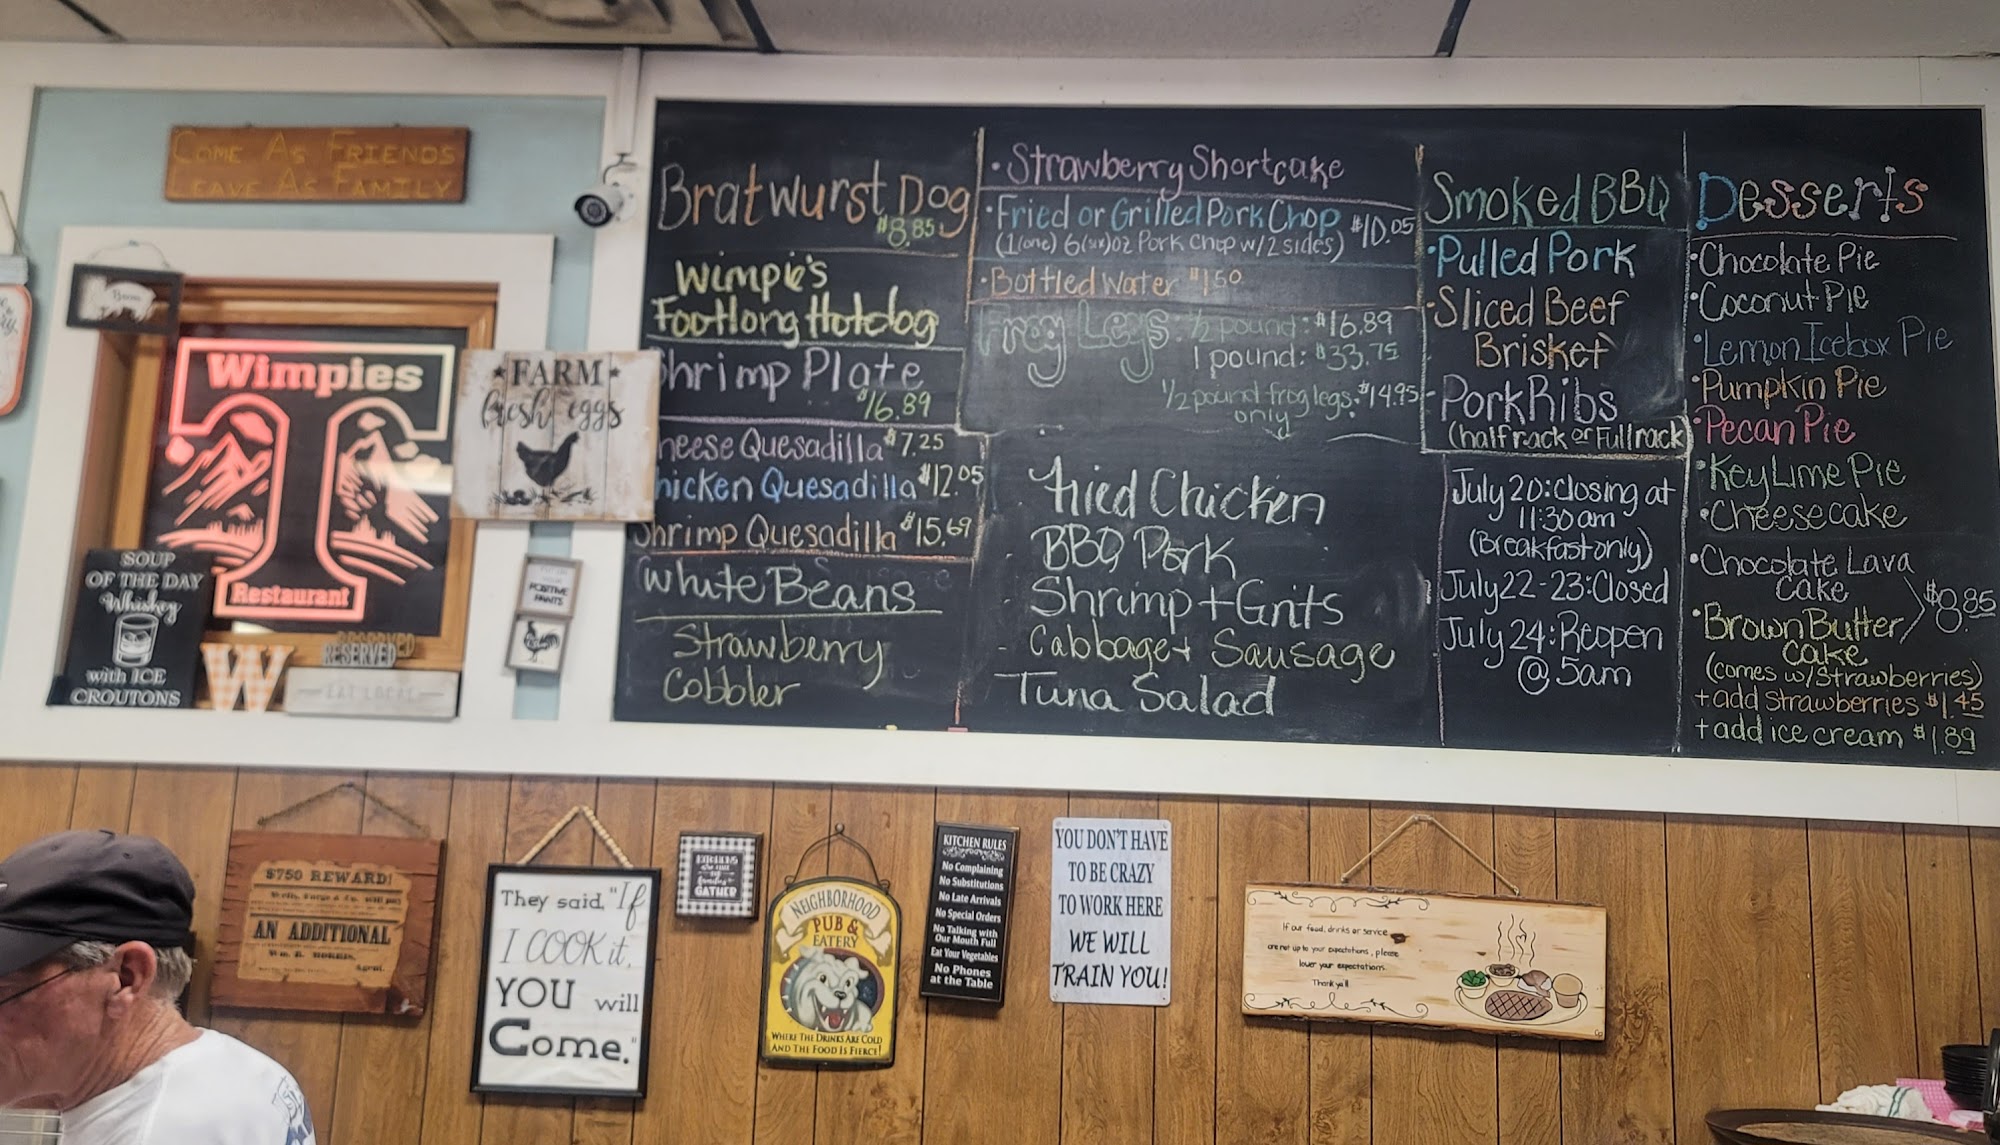 COME AS FRIENDS
LEAVE AS FAMILY
Wimpies
Restaurant
FARM
fresh eggs
SOUP
OF THE DAY
Whiskey
with ICE
CROUTONS
W
RESERVED
RESERVED
EAT LOCAL
POSITIVE
PANTS
Bratwurst Dog
$8.85
Wimpie's
Footlong Hotdog
Shrimp Plate
$16.89
Cheese Quesadilla $7.25
Chicken Quesadilla $12.05
Shrimp Quesadilla $15.69
White Beans
Strawberry
Cobbler
• Strawberry Shortcake
• Fried or Grilled Pork Chop $10.05
(1(one) 6(six)oz Pork Chop w/2 sides)
• Bottled Water $1.50
Frog Legs: 1/2 pound: $16.89
1 pound: $33.75
1/2 pound frog legs: $14.95
only
Fried Chicken
BBQ Pork
Shrimp + Grits
- Cabbage + Sausage
Tuna Salad
Smoked BBQ
• Pulled Pork
• Sliced Beef
Brisket
- Pork Ribs
(half rack or Full rack)
July 20: closing at
11:30am
(Breakfast only)
July 22-23: Closed
July 24: Reopen
@ 5am
Desserts
• Chocolate Pie
• Coconut Pie
• Lemon Icebox Pie
• Pumpkin Pie
• Pecan Pie
• Key Lime Pie
• Cheesecake
• Chocolate Lava
Cake
$8.85
• Brown Butter
Cake
(comes w/strawberries)
+ add strawberries $1.45
+ add ice cream $1.89
$750 REWARD!
AN ADDITIONAL
They said, "If
I COOK it,
YOU will
Come."
GATHER
NEIGHBORHOOD
PUB &
EATERY
WHERE THE DRINKS ARE COLD
AND THE FOOD IS FIERCE!
KITCHEN RULES
No Complaining
No Substitutions
No Late Arrivals
No Special Orders
No Talking with
Our Mouth Full
Eat Your Vegetables
No Phones
at the Table
YOU DON'T HAVE
TO BE CRAZY
TO WORK HERE
WE WILL
TRAIN YOU!
If our food, drinks or service
are not up to your expectations, please
lower your expectations.
Thank ya'll